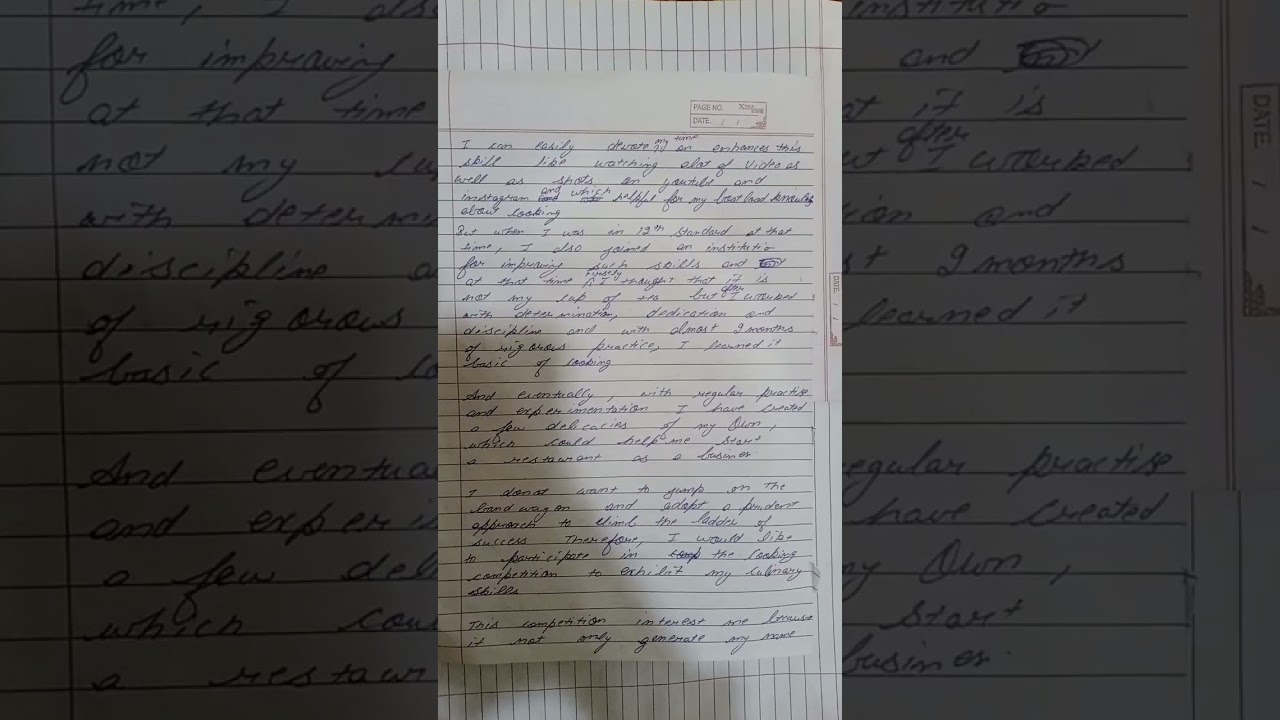 PAGE NO.
DATE: / /
I can easily devote my time on enhances this
skill like watching alot of video as
well as shots on youtube and
instagram and which helpful for my
about cooking
But when I was in 12th standard at that
time, I also joined an institutio
for improving such skills and
at that time firstly I thought that it is
not my cup of tea but after I wourked
with determination, dedication and
discipline and with almost 2 months
of rigorous practice, I learned it
basic of cooking
And eventually, with regular practise
and experimentation I have created
a few delicacies of my Own,
which could help me start
a restaurant as a busines.
I donot want to jump on the
band wagon and adopt a prudent
approach to climb the ladder of
success Therefore, I would like
to participate in the cooking
competition to exhibit my culinary
skills
This competition interest me because
it not only generate my name
DATE / /